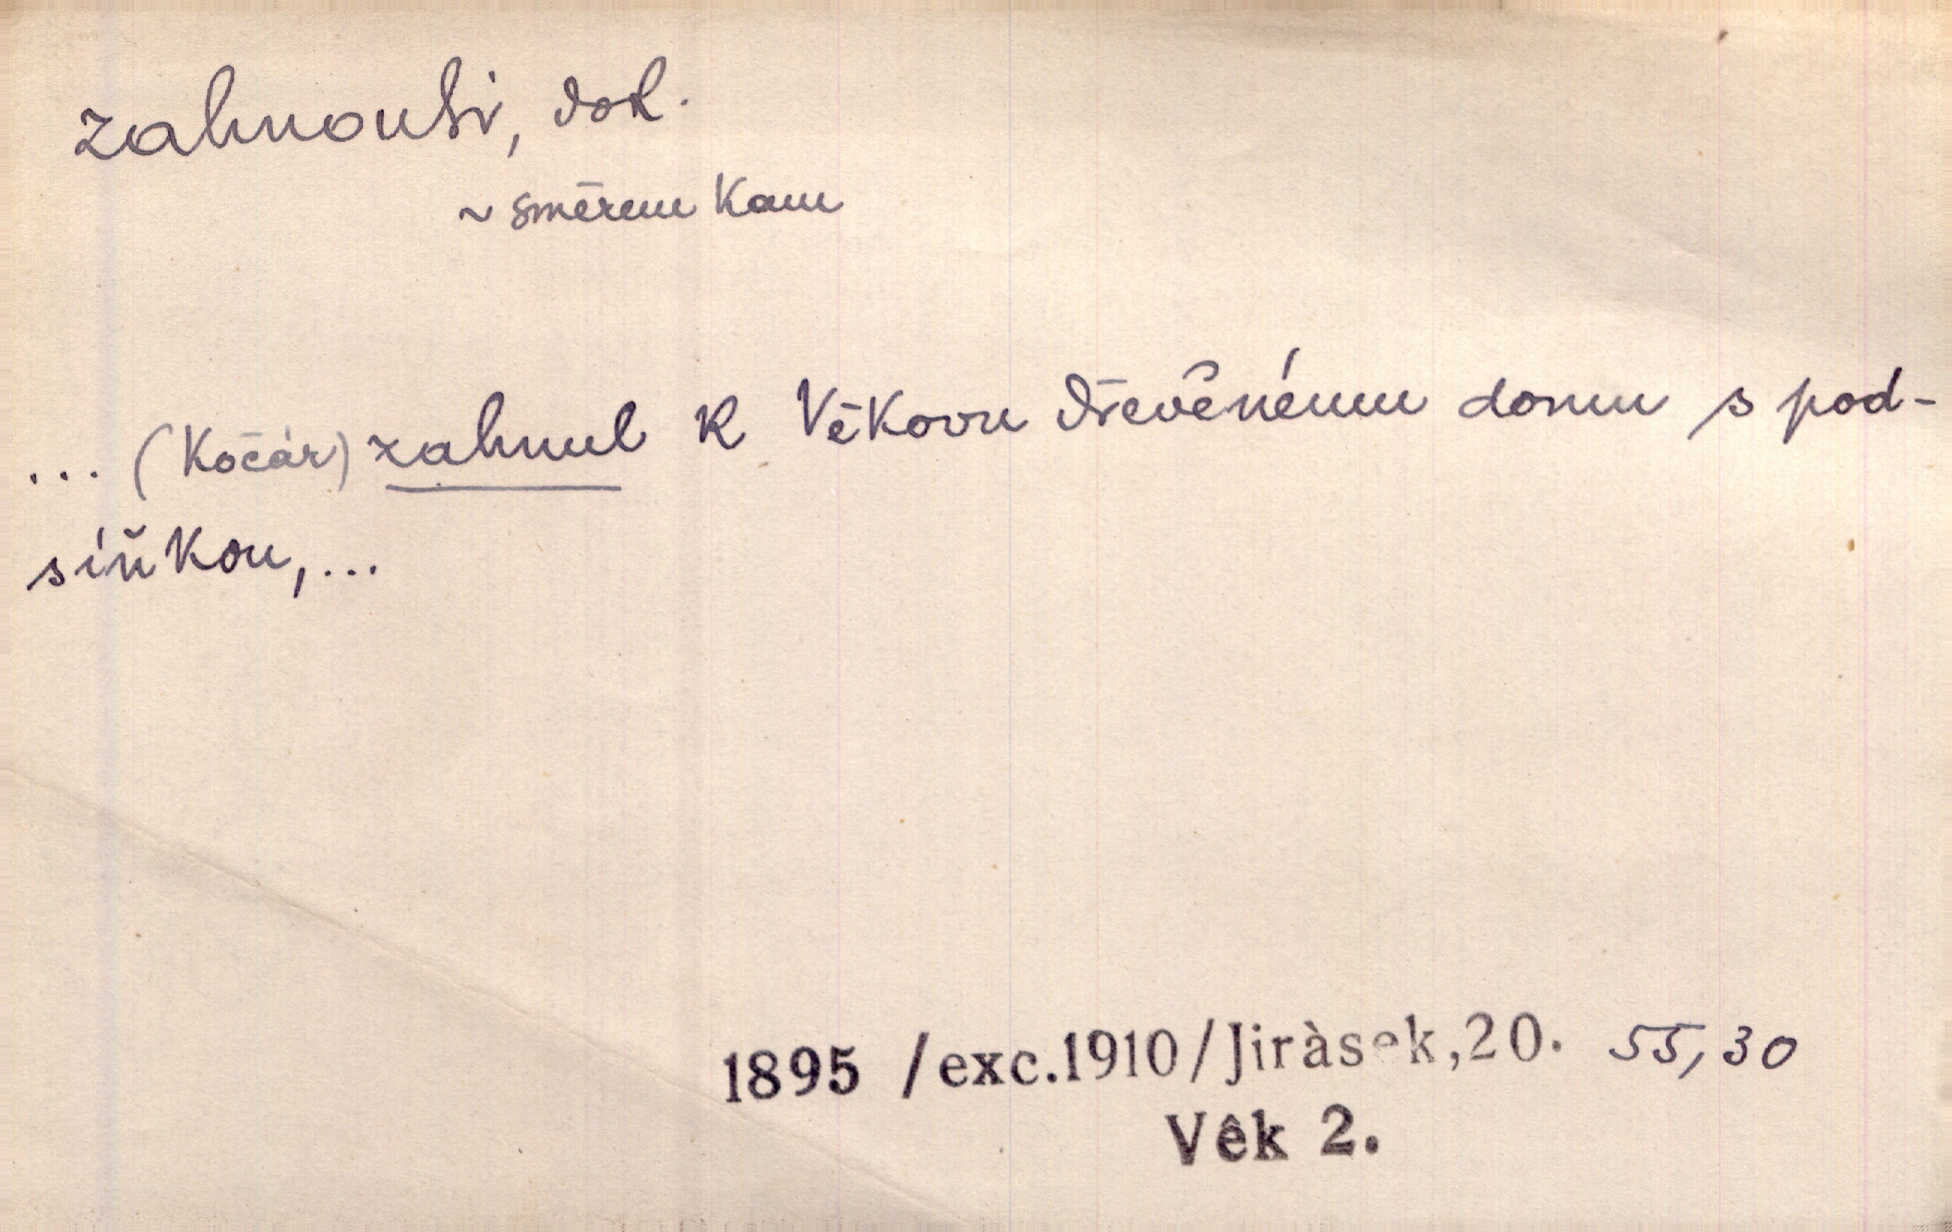 zahnouti, dok.
~ směrem kam
... (Kočár) zahnul k Věkovu dřevěnému domu s pod-
síňkou, ...
1895 /exc.1910/Jiràsek,20. 55,30
Vêk 2.